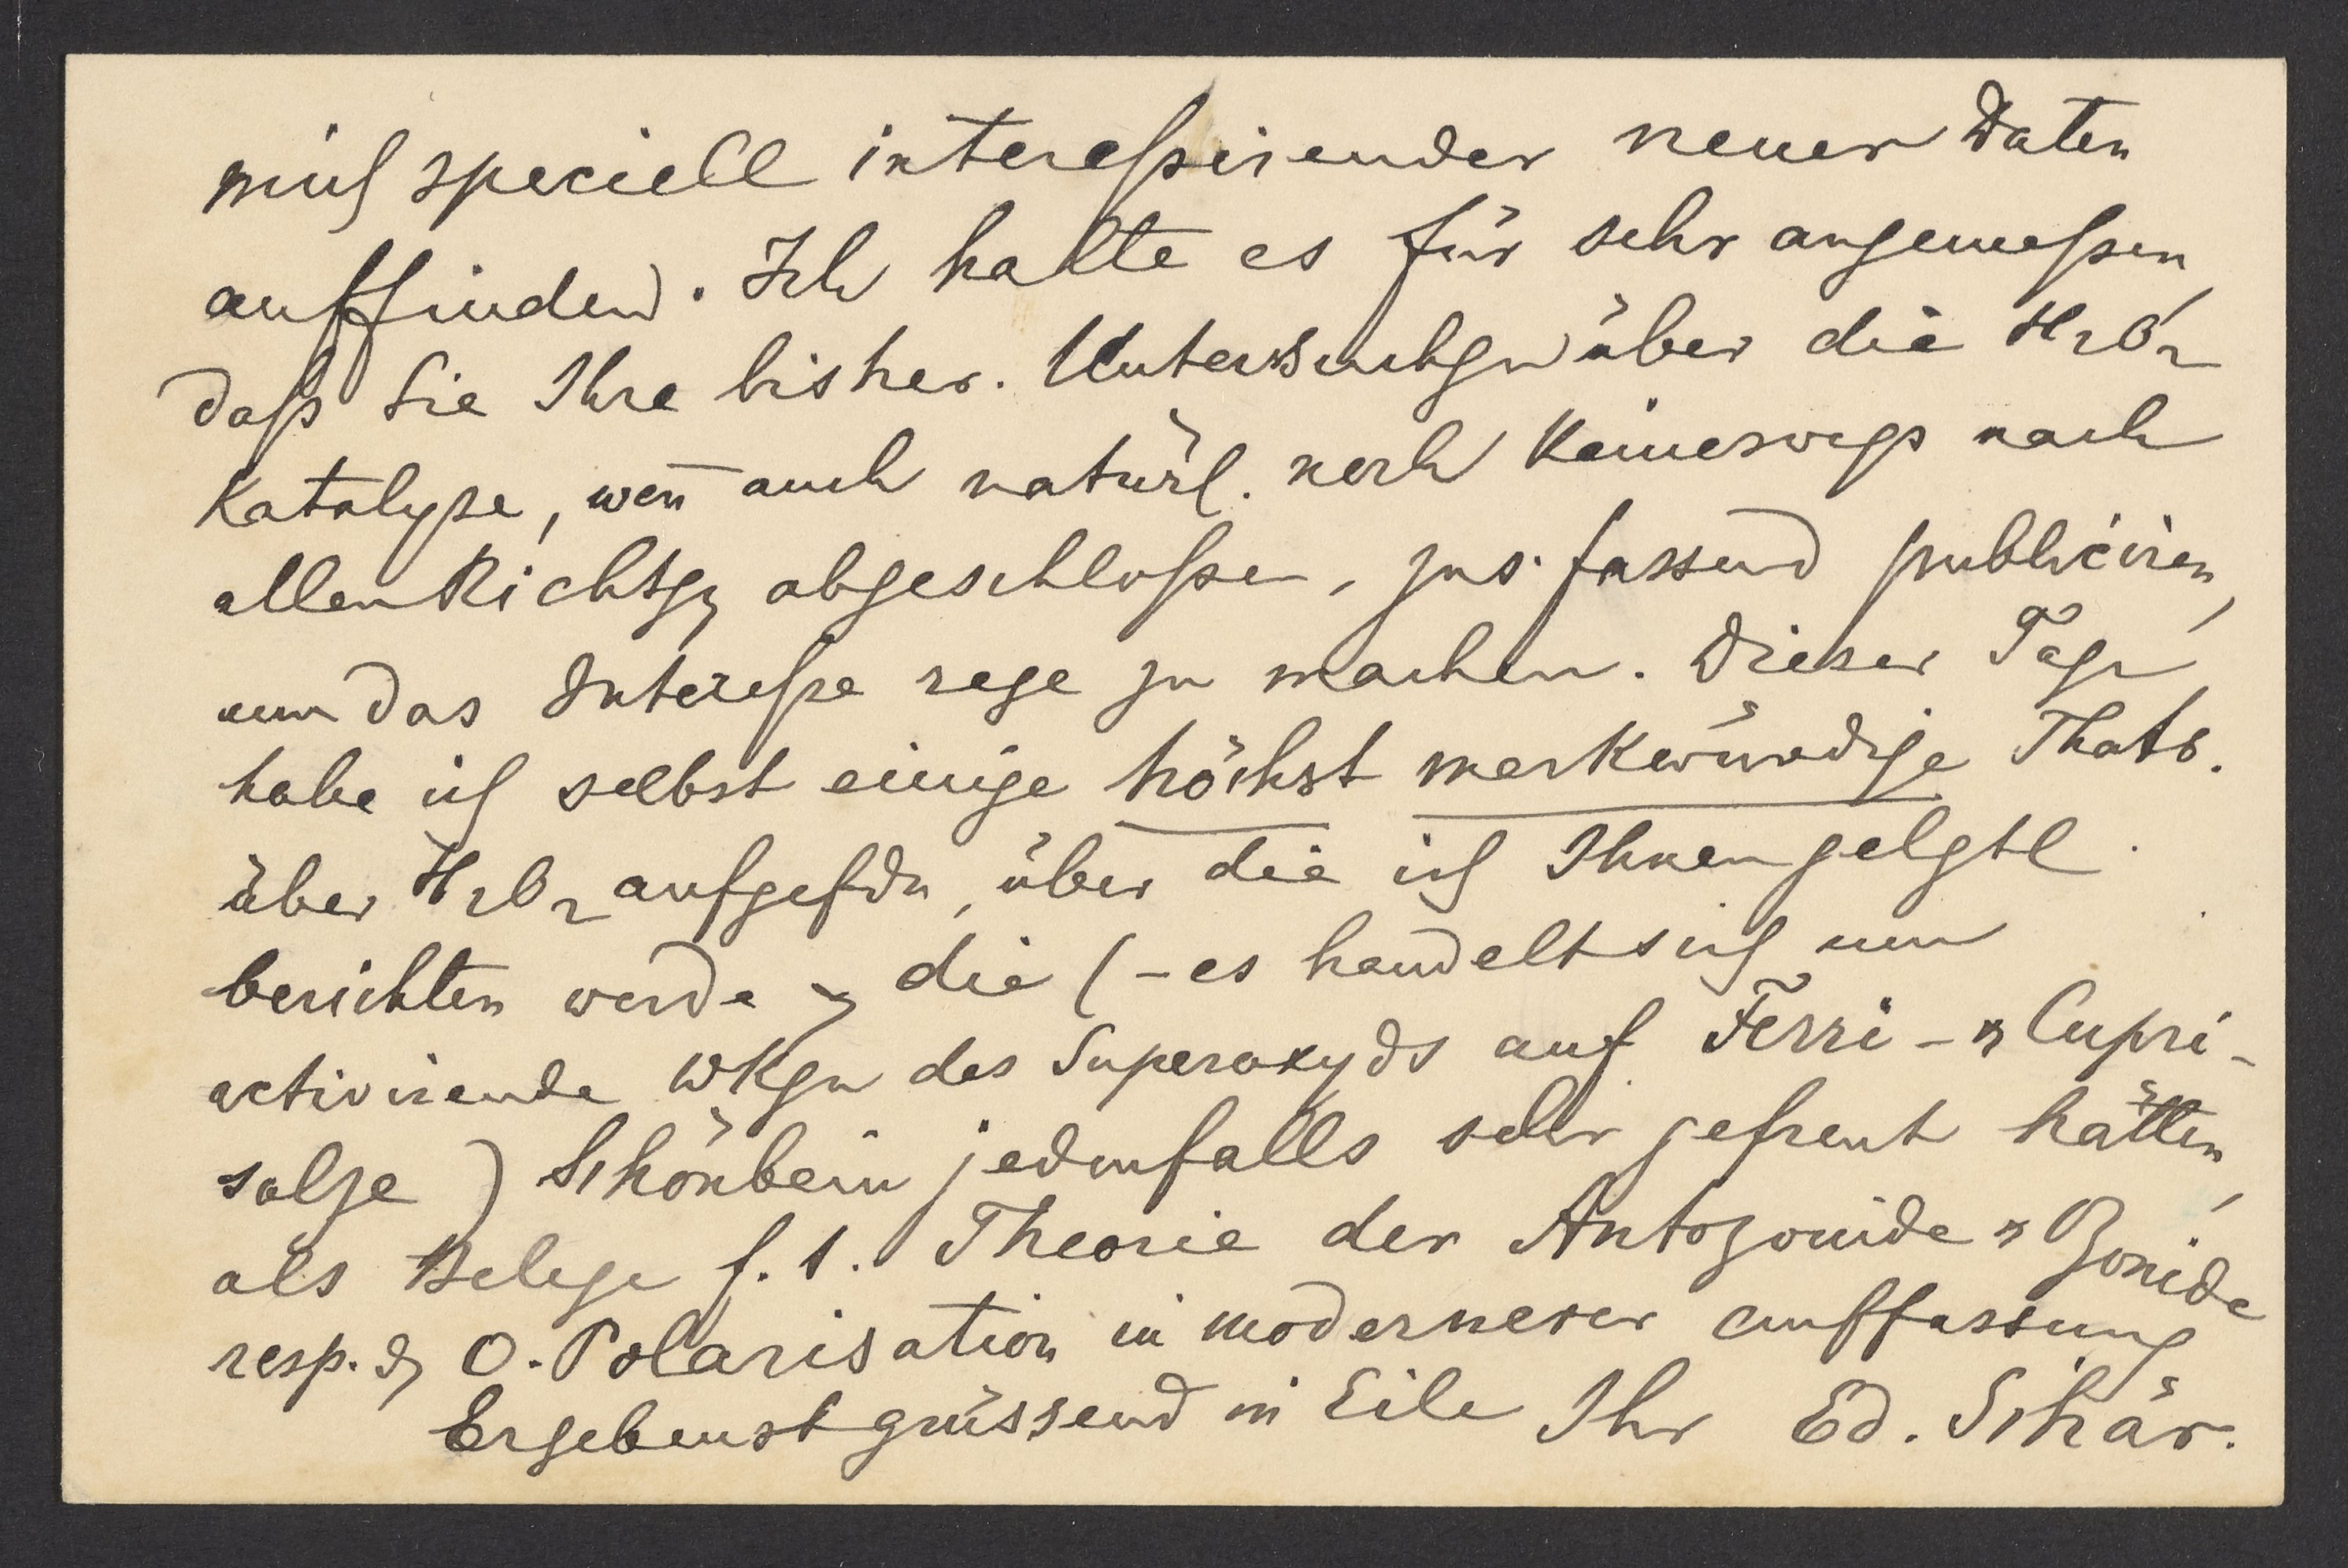 mich speciell intereßirender neuer Daten
auffinden. Ich halte es für sehr angemeßen,
daß Sie Ihre bisher. Untersuchgn über die H2O2
Katalyse, wen̄ auch natürl. noch Keineswegs nach
allen Richtgn abgeschloßen, zus. fassend publiciren,
um das Intereße rege zu machen. Dieser Tage
habe ich selbst einige höchst merkwürdige Thats.
über H2O2 aufgefdn, über die ich Ihnen gelgtl.
berichten werde & die (- es handelt sich um
activirende Wkgn des Superoxyds auf Ferri- & Cupri-
salze) Schönbein jedenfalls sehr gefreut hätten,
als Belege f. s. Theorie der Antozonide & Ozonide
resp. d. O. Polarisation in modernerer Auffassung
Ergebenst grüssend in Eile Ihr Ed. Schär.